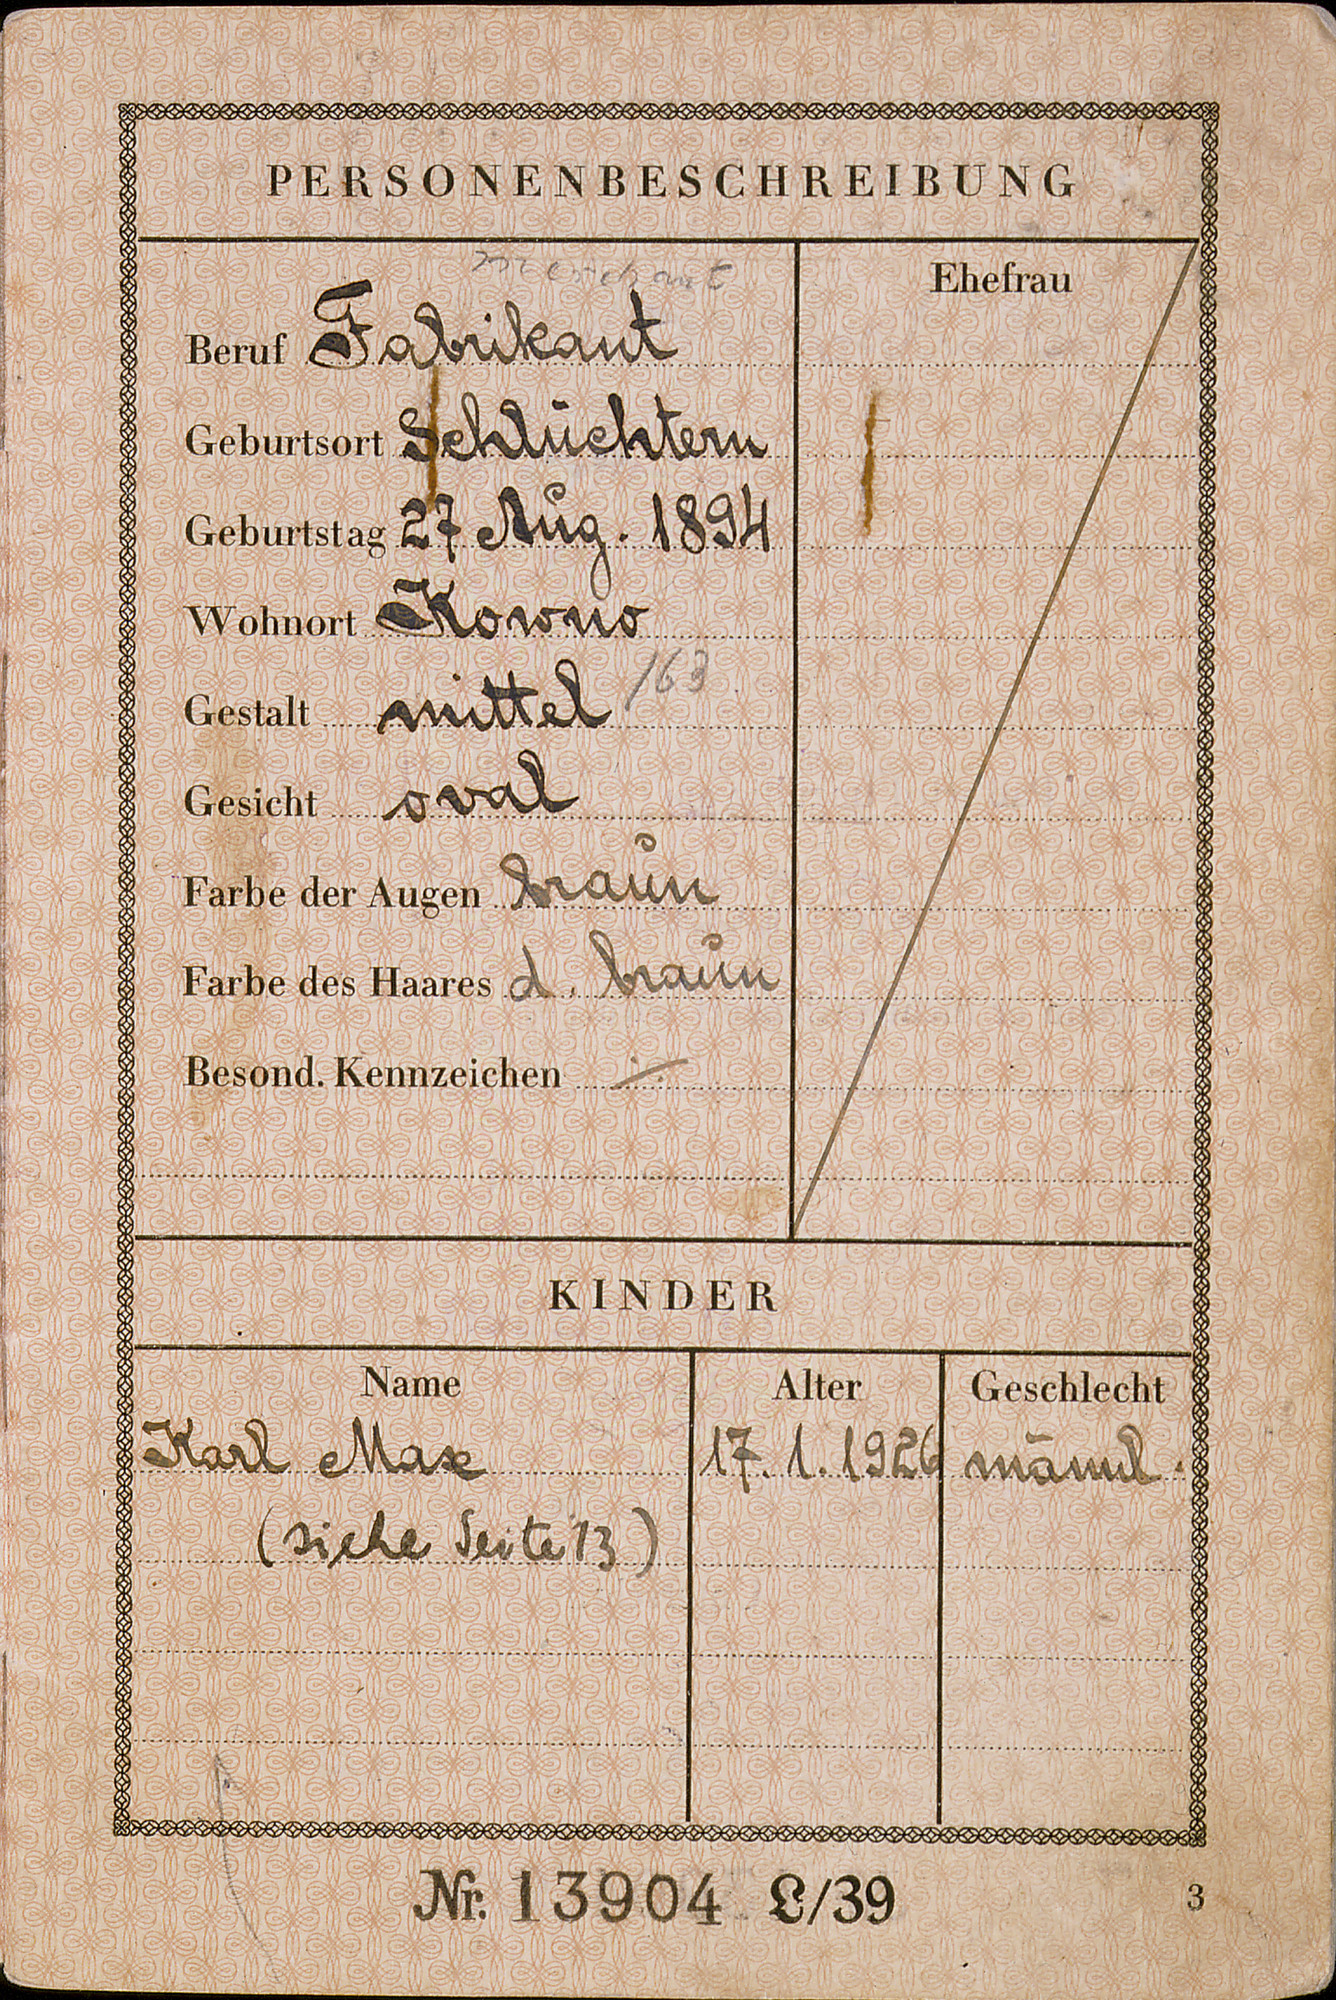 PERSONENBESCHREIBUNG
merchant
Ehefrau
Beruf Fabrikant
Geburtsort Schlüchtern
Geburtstag 27 Aug. 1894
Wohnort Kowno
Gestalt mittel /163
Gesicht oval
Farbe der Augen braun
Farbe des Haares d. braun
Besond. Kennzeichen ./.
KINDER
Name Alter Geschlecht
Karl Max 17.1.1926 männl.
(siehe Seite 13)
Nr. 13904 L/39
3